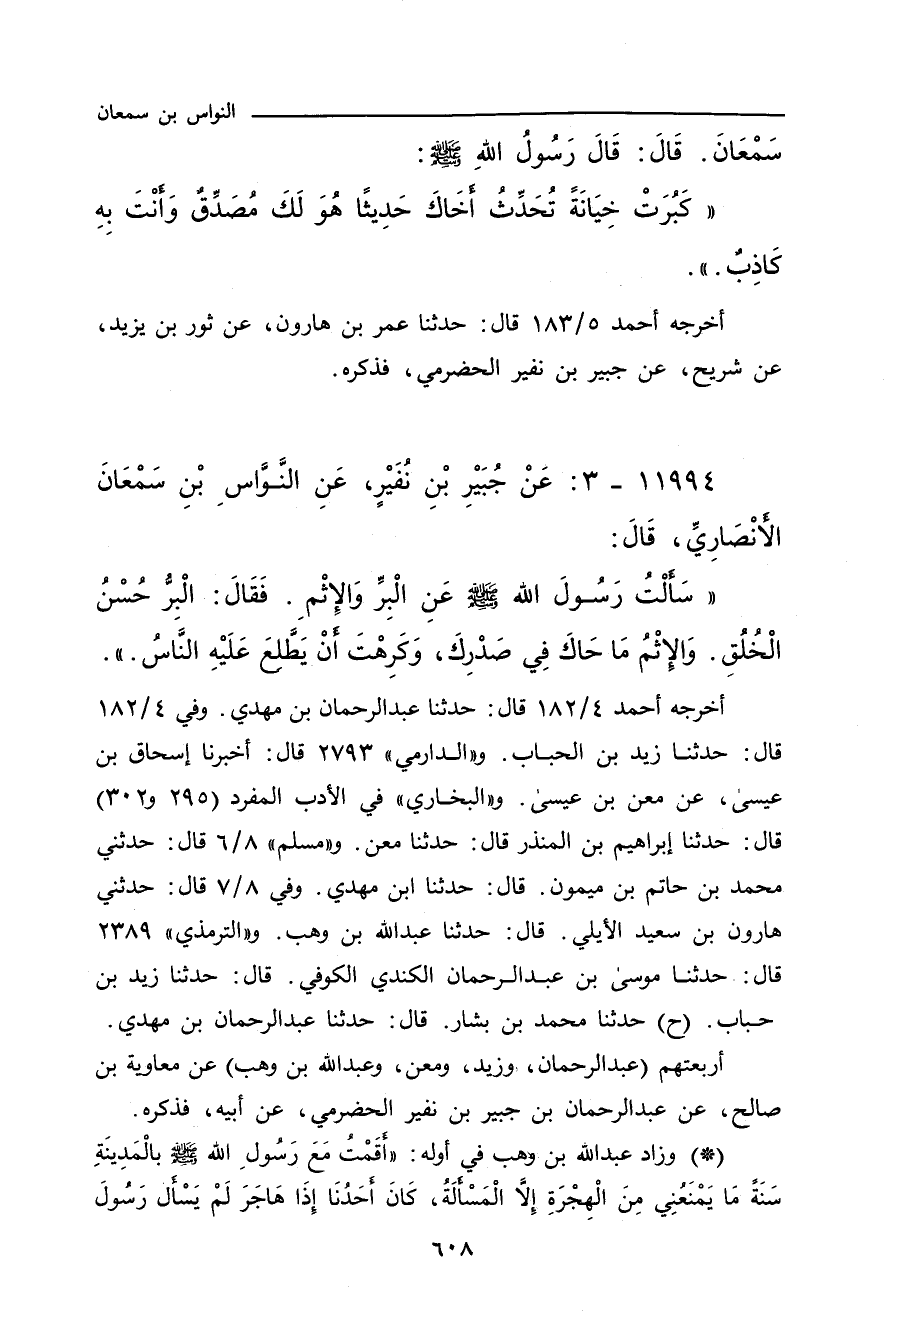 النواس بن سمعان
سَمْعَانَ. قَالَ: قَالَ رَسُولُ اللهِ ﷺ:
« كَبُرَتْ خِيَانَةً تُحَدِّثُ أَخَاكَ حَدِيثًا هُوَ لَكَ مُصَدِّقٌ وَأَنْتَ بِهِ
كَاذِبٌ. ».
أخرجه أحمد ١٨٣/٥ قال: حدثنا عمر بن هارون، عن ثور بن يزيد،
عن شريح، عن جبير بن نفير الحضرمي، فذكره.
١١٩٩٤ - ٣: عَنْ جُبَيْرِ بْنِ نُفَيْرٍ، عَنِ النَّوَّاسِ بْنِ سَمْعَانَ
الأَنْصَارِيِّ، قَالَ:
« سَأَلْتُ رَسُولَ الله ﷺ عَنِ الْبِرِّ وَالإِثْمِ. فَقَالَ: الْبِرُّ حُسْنُ
الْخُلُقِ. وَالإِثْمُ مَا حَاكَ فِي صَدْرِكَ، وَكَرِهْتَ أَنْ يَطَّلِعَ عَلَيْهِ النَّاسُ. ».
أخرجه أحمد ١٨٢/٤ قال: حدثنا عبدالرحمان بن مهدي. وفي ١٨٢/٤
قال: حدثنا زيد بن الحباب. و«الدارمي» ٢٧٩٣ قال: أخبرنا إسحاق بن
عيسىٰ، عن معن بن عيسىٰ. و«البخاري» في الأدب المفرد (٢٩٥ و٣٠٢)
قال: حدثنا إبراهيم بن المنذر قال: حدثنا معن. و«مسلم» ٦/٨ قال: حدثني
محمد بن حاتم بن ميمون. قال: حدثنا ابن مهدي. وفي ٧/٨ قال: حدثني
هارون بن سعيد الأيلي. قال: حدثنا عبدالله بن وهب. و«الترمذي» ٢٣٨٩
قال: حدثنا موسىٰ بن عبدالرحمان الكندي الكوفي. قال: حدثنا زيد بن
حباب. (ح) حدثنا محمد بن بشار. قال: حدثنا عبدالرحمان بن مهدي.
أربعتهم (عبدالرحمان، وزيد، ومعن، وعبدالله بن وهب) عن معاوية بن
صالح، عن عبدالرحمان بن جبير بن نفير الحضرمي، عن أبيه، فذكره.
(*) وزاد عبدالله بن وهب في أوله: «أَقَمْتُ مَعَ رَسُولِ الله ﷺ بالْمَدِينَةِ
سَنَةً مَا يَمْنَعُنِي مِنَ الْهِجْرَةِ إِلَّا الْمَسْأَلَةُ، كَانَ أَحَدُنَا إِذَا هَاجَرَ لَمْ يَسْأَل رَسُولَ
٦٠٨